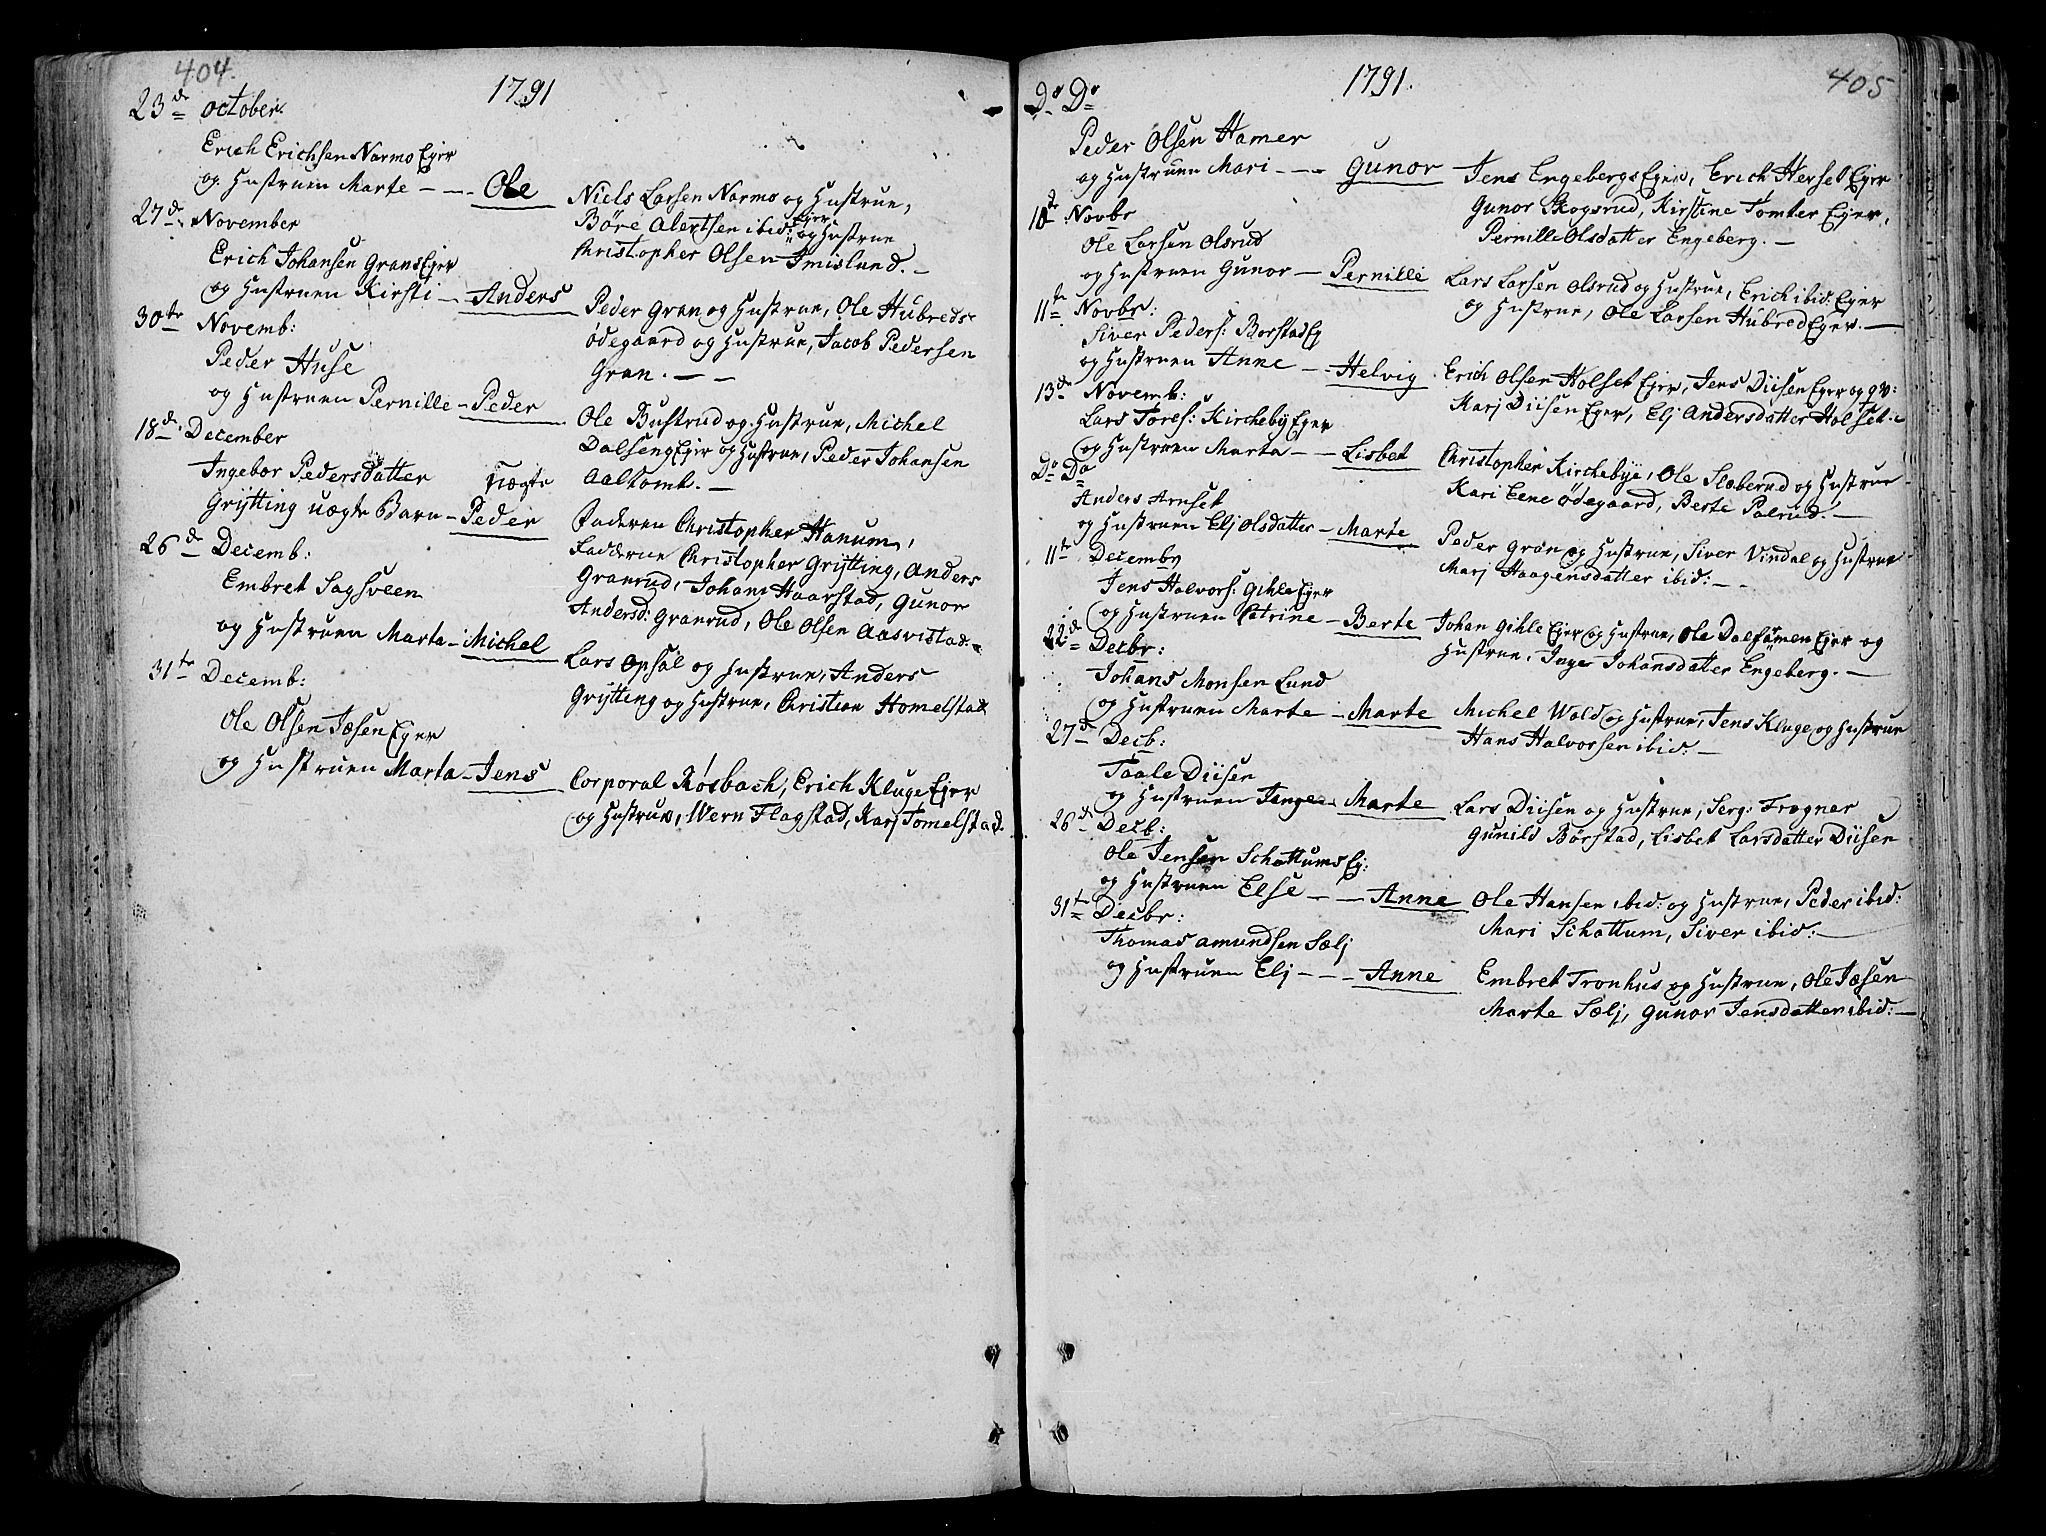 404.
1791
23de October.
Erich Erichsen Narmo Ejer
og Hustruen Marte - - Ole
Niels Larsen Narmo og Hustrue,
Böre Alertsen ibid: Ejer og Hustrue
Christopher Olsen Imislund. -
27de November
Erich Johansen Grans Ejer
og Hustruen Kirsti - Anders
Peder Gran og Hustrue, Ole Hubreds-
ødegaard og Hustrue, Jacob Pedersen
Gran. - -
30te Novemb:
Peder Huse
og Hustruen Pernille - Peder
Ole Bustrud og Hustrue, Michel
Dalseng Ejer og Hustrue, Peder Johansen
Aaltomt. -
18de December
Ingebor Pedersdatter uægte
Grÿtting uægte Barn - Peder
Faderen Christopher Hanum,
Fadderne Christopher Grÿtting, Anders
Granrud, Johans Haarstad, Gunor
Andersd: Granrud, Ole Olsen Aasvistad. -
26de Decemb:
Embret Sagsveen
og Hustruen Marta - Michel
Lars Opsal og Hustrue, Anders
Grÿtting og Hustrue, Christian Homelstad
31te Decemb:
Ole Olsen Jæsen Ejer
og Hustruen Marta - Jens
Corporal Rosbach, Erich Kluge Ejer
og Hustrue, Wern Flagstad, Karj Tomelstad.
405
1791.
Do Do
Peder Olsen Hamer
og Hustruen Mari - - - Gunor
Jens Engebergs Ejer, Erich Herset Ejer
Gunor Skogsrud, Kirstine Tomter Ejer,
Pernille Olsdatter Engeberg. -
10de Novbr
Ole Larsen Olsrud
og Hustruen Gunor - Pernille
Lars Larsen Olsrud og Hustrue, Erich ibid: Ejer
og Hustrue, Ole Larsen Hubred Ejer. -
11te Novbr:
Siver Peders: Borstad Ej
og Hustruen Anne - Helvig
Erich Olsen Holset Ejer, Jens Diisen Ejer og qv:
Karj Diisen Ejer, Elj Andersdatter Holset. -
13de Novemb:
Lars Tores: Kirchebÿ Ejer
og Hustruen Marta - - Lisbet
Christopher Kirchebÿe, Ole Slæberud og Hustrue
Kari Eene Ødegaard, Berte Palrud. -
Do Do
Anders Arnset
og Hustruen Elj Olsdatter - Marte
Peder Gran og Hustrue, Siver Vindal og Hustrue
Marj Haagensdatter ibid: - -
11te Decembr
Jens Halvors: Gihle Ejer
og Hustruen Catrine - Berte
Johan Gihle Ejer og Hustrue, Ole Dalssmen Ejer og
Hustrue, Inger Johansdatter Engeberg. -
22de Decbr:
Johans Monsen Lund
og Hustruen Marte - Marte
Michel Wold og Hustrue, Jens Kluge og Hustrue
Hans Halvorsen ibid: -
27de Decb:
Taale Diisen
og Hustruen - Marte
Lars Diisen og Hustrue, Serg: Frogner
Gunild Børstad, Lisbet Larsdatter Diisen
26de Decb:
Ole Jensen Schattums Ej:
og Hustruen Else - - Anne
Ole Hansen ibid: og Hustrue, Peder ibid:
Mari Schattum, Siver ibid: -
31te Decbr:
Thomas Amundsen Sælj
og Hustruen Elj - - - Anne
Embret Tronhus og Hustrue, Ole Jæsen
Marte Sælj, Gunor Jensdatter ibid: -